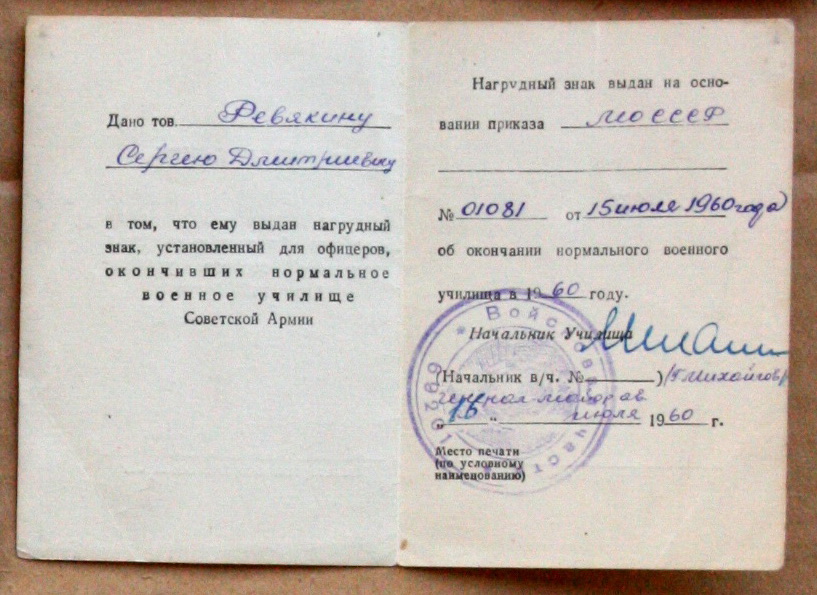 Дано тов. Ревякину
Сергею Дмитриевичу
в том, что ему выдан нагрудный
знак, установленный для офицеров,
окончивших нормальное
военное училище
Советской Армии
Нагрудный знак выдан на осно-
вании приказа МО СССР
№ 01081 от 15 июля 1960 года
об окончании нормального военного
училища в 1960 году.
Начальник Училища
(Начальник в/ч. № )
генерал-майор ав
„16 " июля 1960 г.
Место печати
(по условному
наименованию)
Войсковая часть